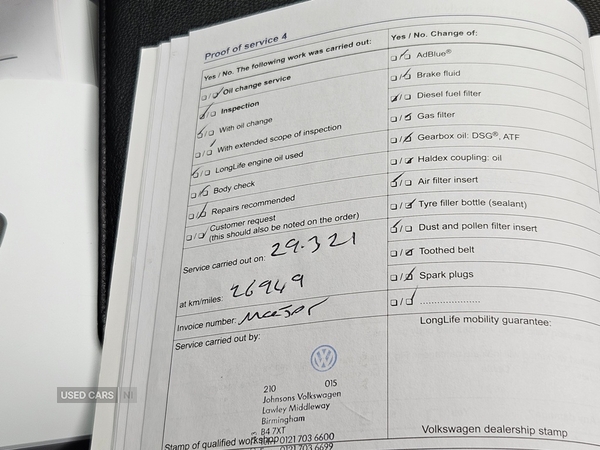 Proof of service 4
Yes / No. The following work was carried out:
Oil change service
Inspection
With oil change
With extended scope of inspection
LongLife engine oil used
Body check
Repairs recommended
Customer request
(this should also be noted on the order)
Service carried out on: 29.321
at km/miles: 26949
Invoice number:
Service carried out by:
210 015
Johnsons Volkswagen
Lawley Middleway
Birmingham
B4 7XT
0121 703 6600
0121 703 6699
Stamp of qualified workshop
Yes / No. Change of:
AdBlue®
Brake fluid
Diesel fuel filter
Gas filter
Gearbox oil: DSG®, ATF
Haldex coupling: oil
Air filter insert
Tyre filler bottle (sealant)
Dust and pollen filter insert
Toothed belt
Spark plugs
.....................
LongLife mobility guarantee:
Volkswagen dealership stamp
USED CARS NI